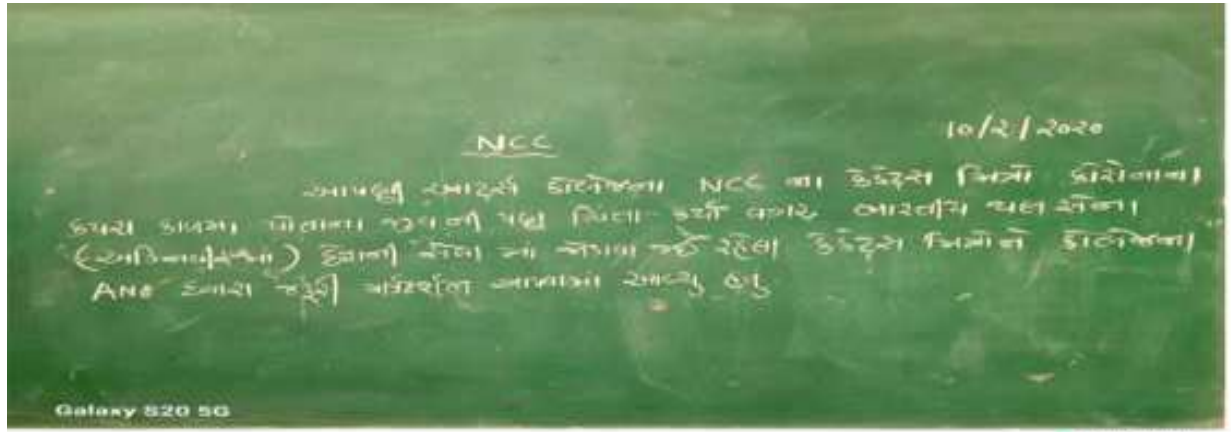 NCC
10/2/2020
આપણી આર્ટ્સ કોલેજના NCC ના કેડેટ્સ મિત્રો કોરોનાના
કપરા કાળમાં પોતાના જીવની પણ ચિંતા કર્યા વગર ભારતીય થલ સેના
દેશની સેવા માં જોડાવા જઈ રહેલા કેડેટ્સ મિત્રોને કોલેજના
ANO દ્વારા જરૂરી માર્ગદર્શન આપવામાં આવ્યુ હતુ
Galaxy S20 5G